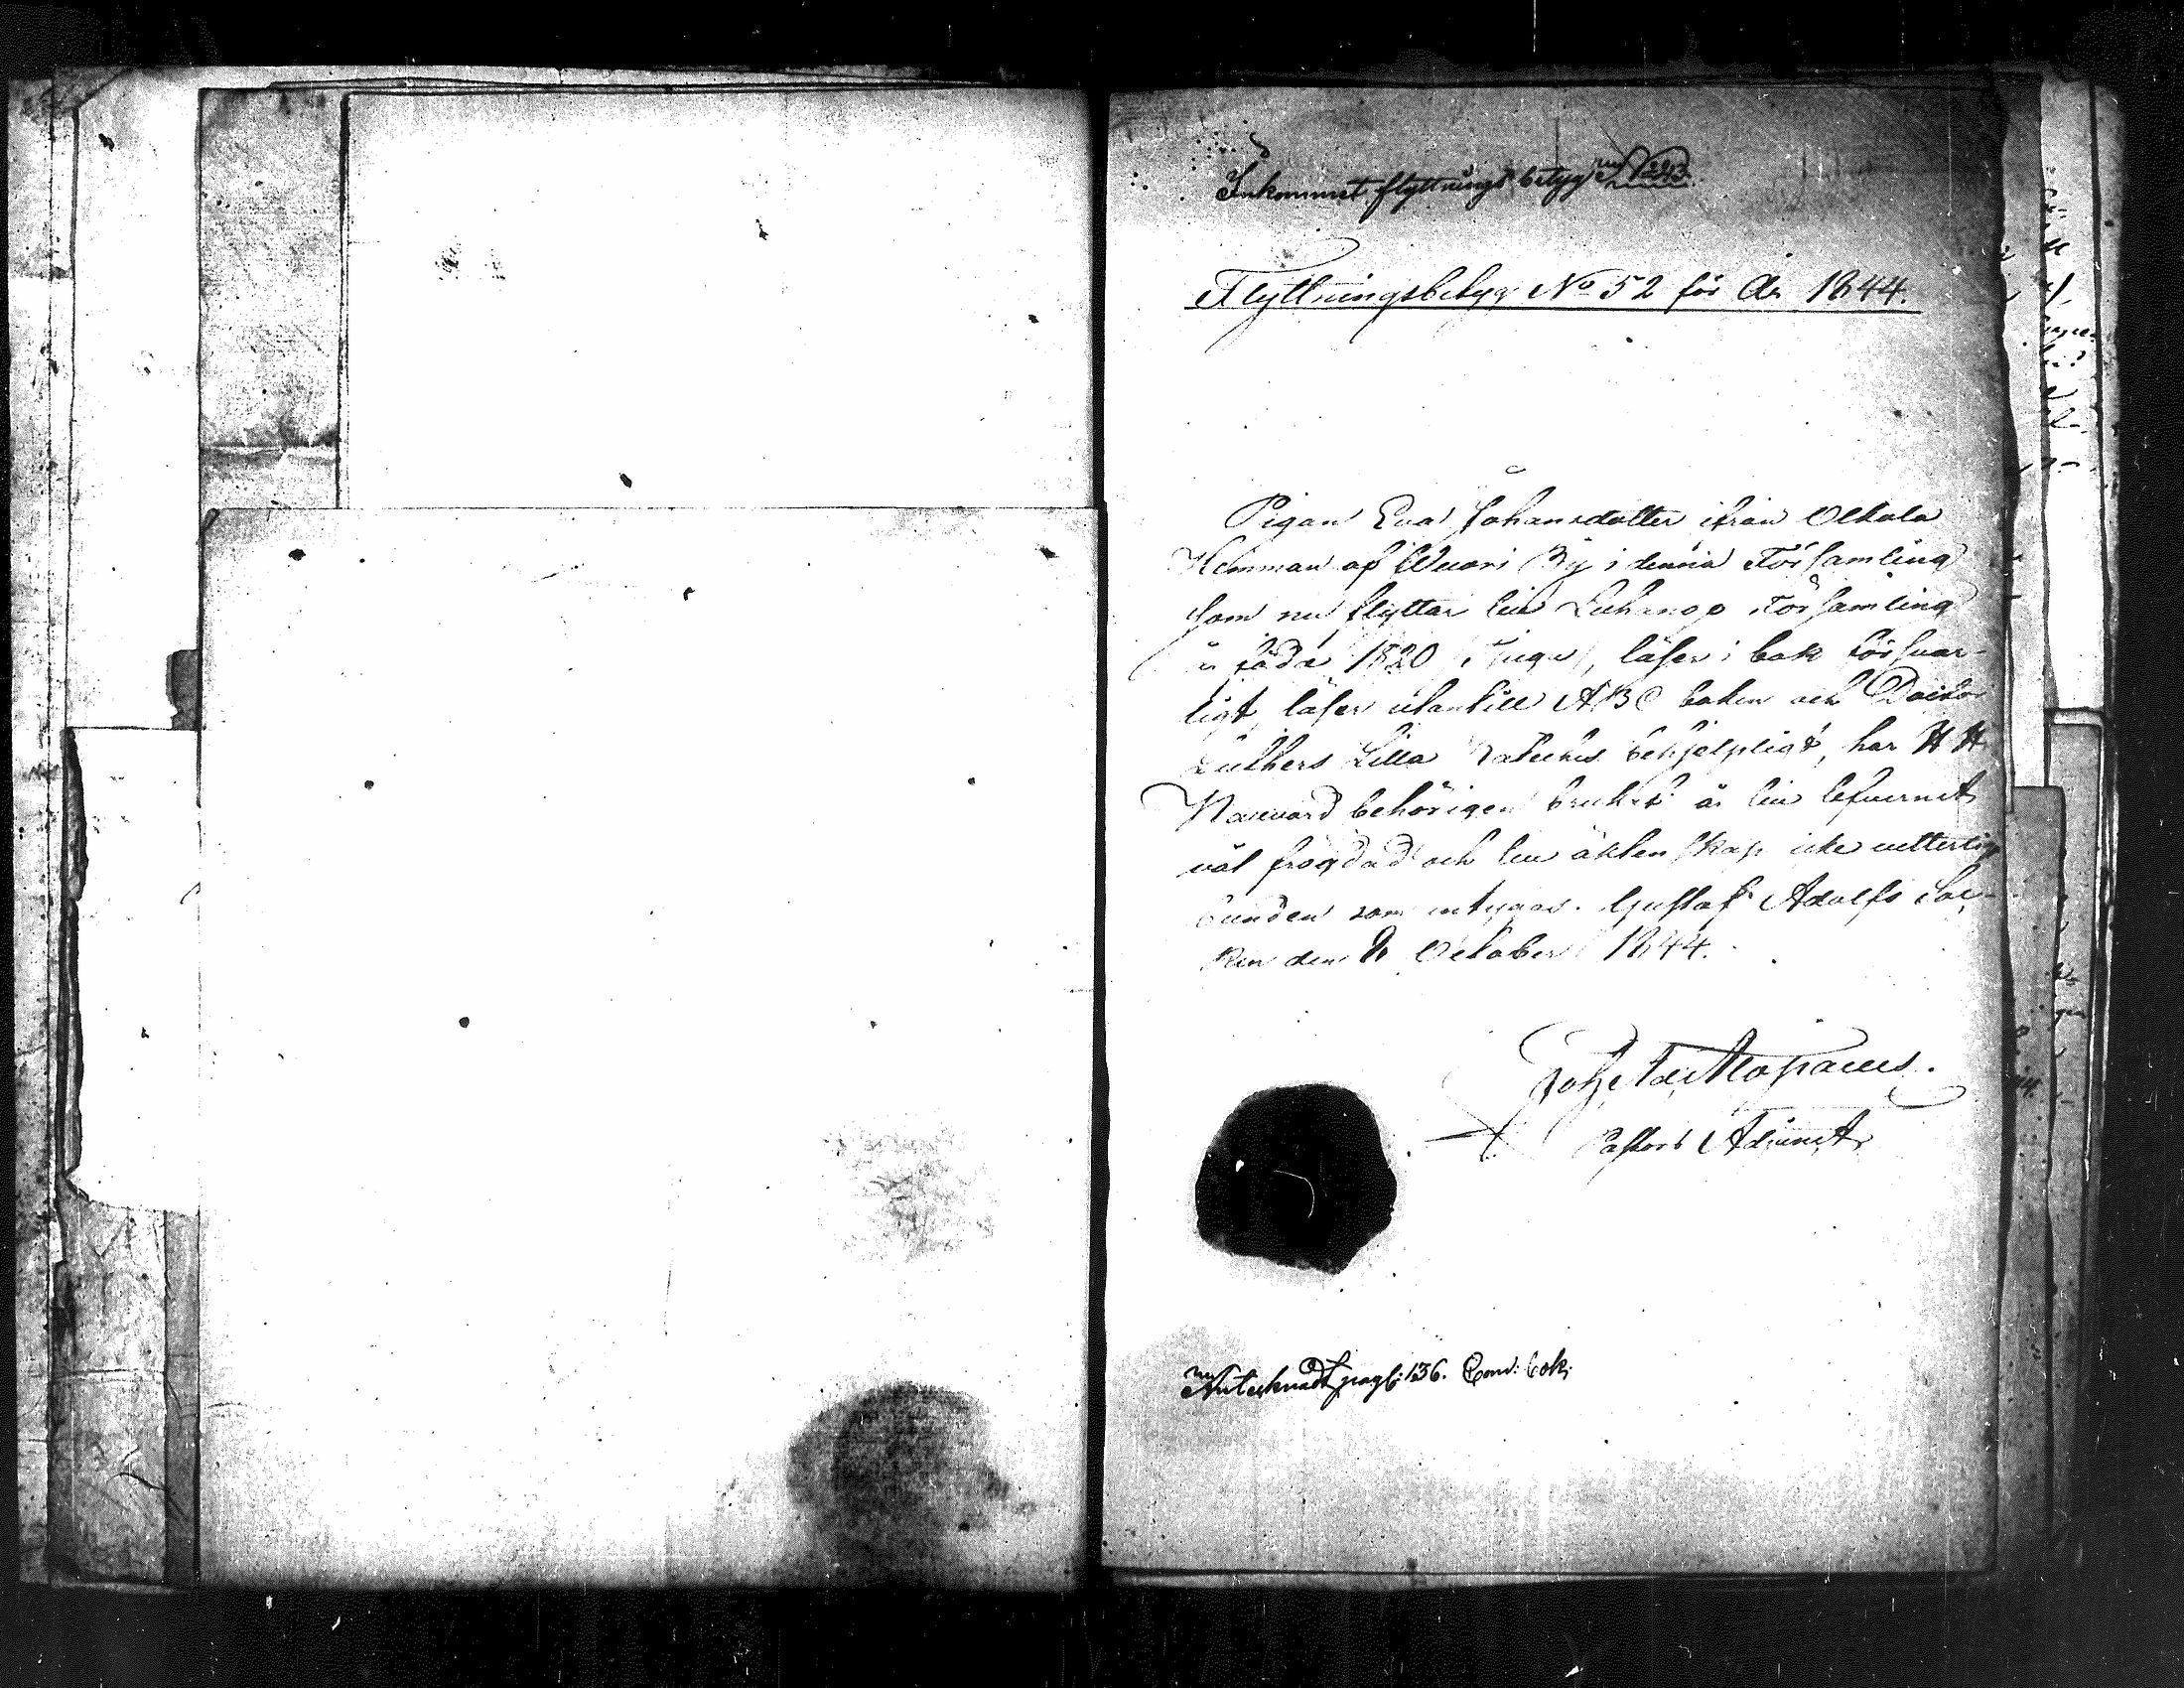 Inkommet flyttnings betyg
Flyttningsbetyg No 52 för År 1844.
Pigan Eva Johansdotter ifrån Olkala
Hemman af Wuori By i denna Församling
som nu flyttar till Luhango Församling
är född 1820 (tjugu), läser i bok försvar-
ligt, läser utantill ABC boken och Doctor
Luthers Lilla Kateches behjelpligt, har H H
Nattvard behörigen brukat är till lefvernet
väl frägdad och till äktenskap icke vetterlig
bunden som intygas. Gustaf Adolfs Soc-
ken den 8 October 1844.
Pastors Adjunct
Antecknadt pag: 136. Com: bok: